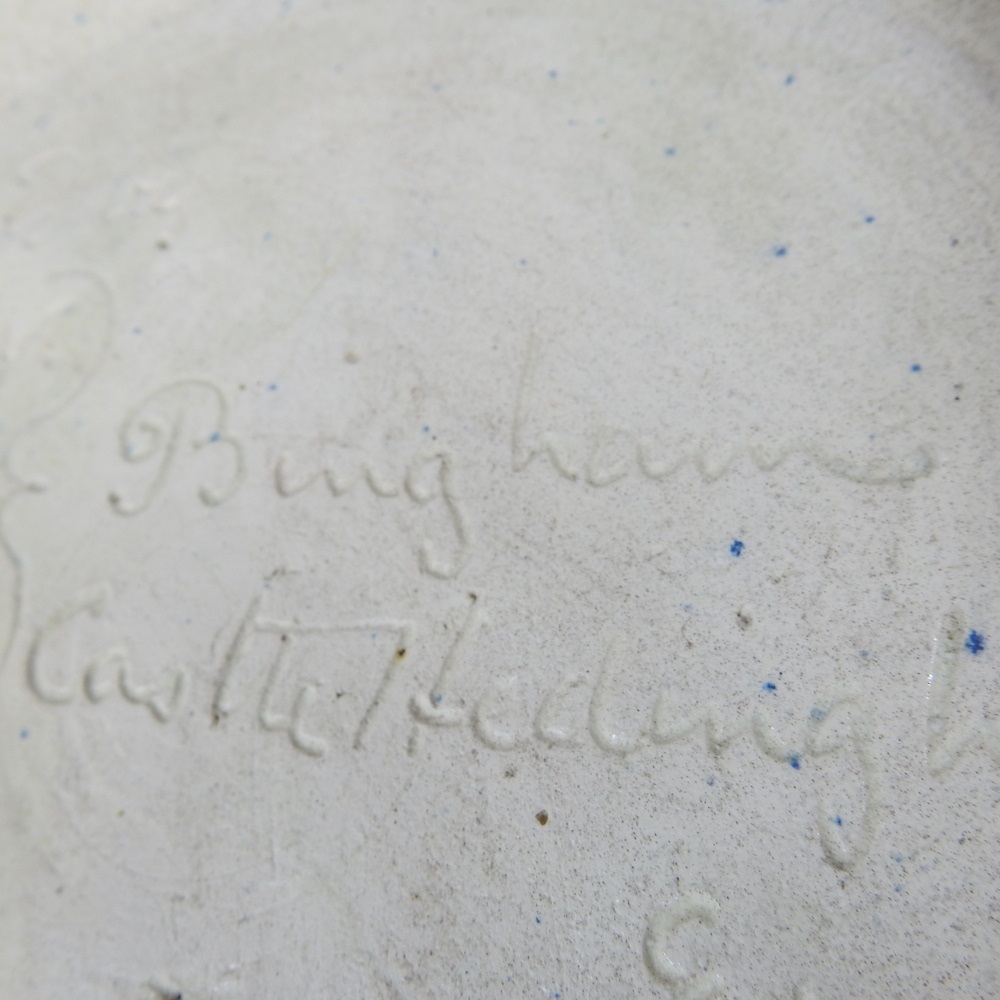 Bingham
Castle Hedingh
E